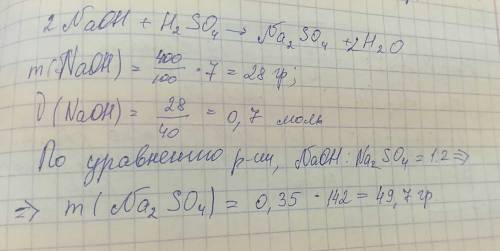 2 NaOH + H₂SO₄ → Na₂SO₄ + 2H₂O
m(NaOH) = 400/100 · 7 = 28 гр;
ν(NaOH) = 28/40 = 0,7 моль
По уравнению р-ии, NaOH : Na₂SO₄ = 1:2 =>
=> m(Na₂SO₄) = 0,35 · 142 = 49,7 гр